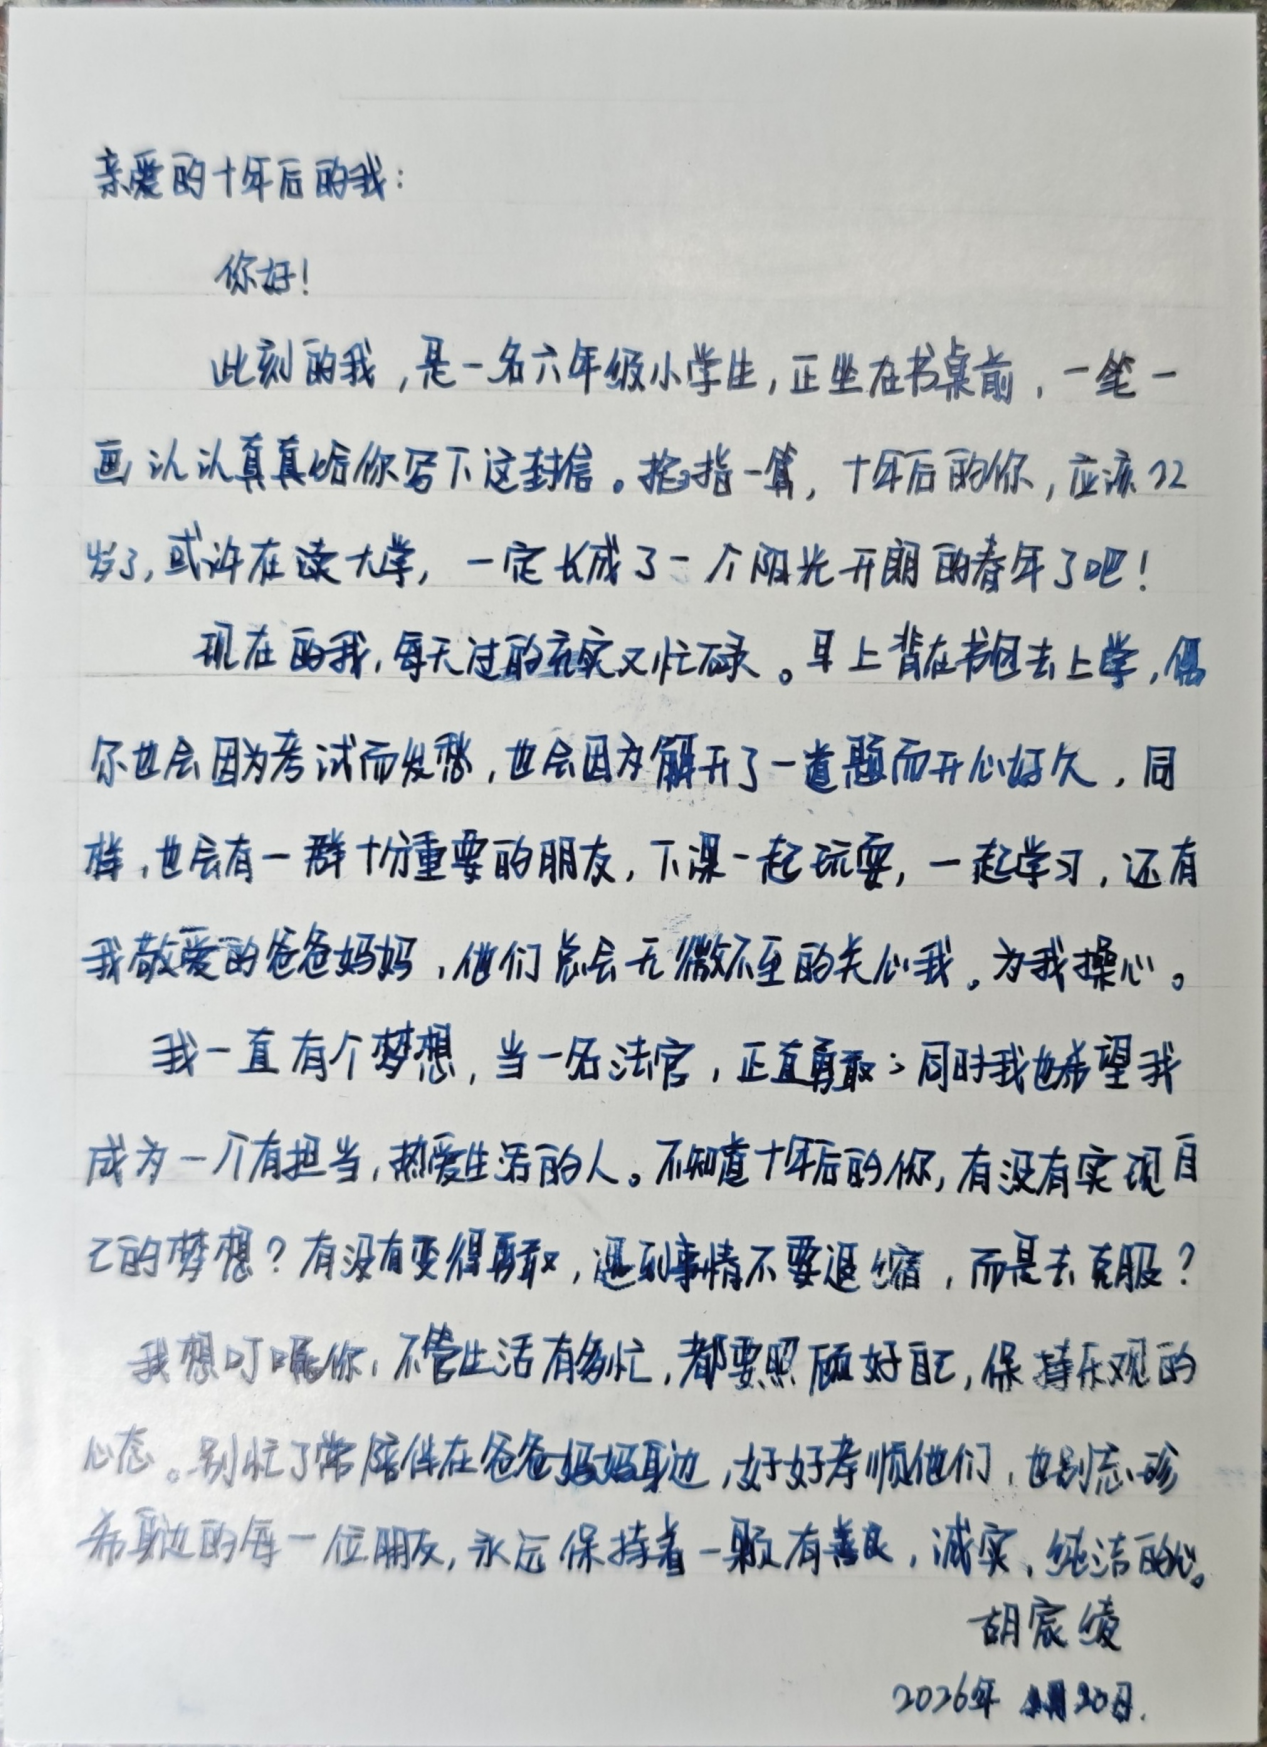 亲爱的十年后的我：
你好！
此刻的我，是一名六年级小学生，正坐在书桌前，一笔一
画认认真真给你写下这封信。掐指一算，十年后的你，应该22
岁了，或许在读大学，一定长成了一个阳光开朗的青年了吧！
现在的我，每天过的充实又忙碌。早上背在书包去上学，偶
尔也会因为考试而发愁，也会因为解开了一道题而开心好久，同
样，也会有一群十分重要的朋友，下课一起玩耍，一起学习，还有
我敬爱的爸爸妈妈，他们总会无微不至的关心我。为我操心。
我一直有个梦想，当一名法官，正直勇敢；同时我也希望我
成为一个有担当，热爱生活的人。不知道十年后的你，有没有实现自
己的梦想？有没有变得勇敢，遇到事情不要退缩，而是去克服？
我想叮嘱你，不管生活有多忙，都要照顾好自己，保持乐观的
心态。别忙了常陪伴在爸爸妈妈身边，好好孝顺他们，也别忘珍
希身边的每一位朋友，永远保持着一颗有善良，诚实，纯洁的心。
胡家绫
2026年 月20日.